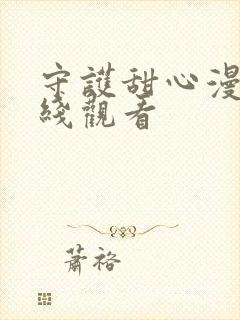 守護甜心漫
綫觀看
蕭褣